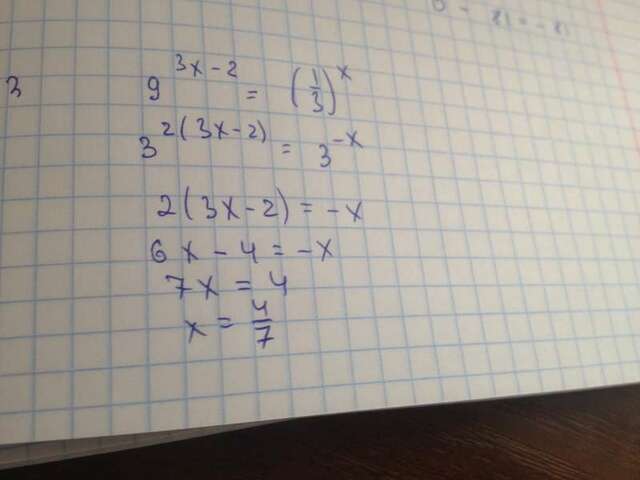 3
9^{3x-2} = (\frac{1}{3})^{x}
3^{2(3x-2)} = 3^{-x}
2(3x-2) = -x
6x - 4 = -x
7x = 4
x = \frac{4}{7}